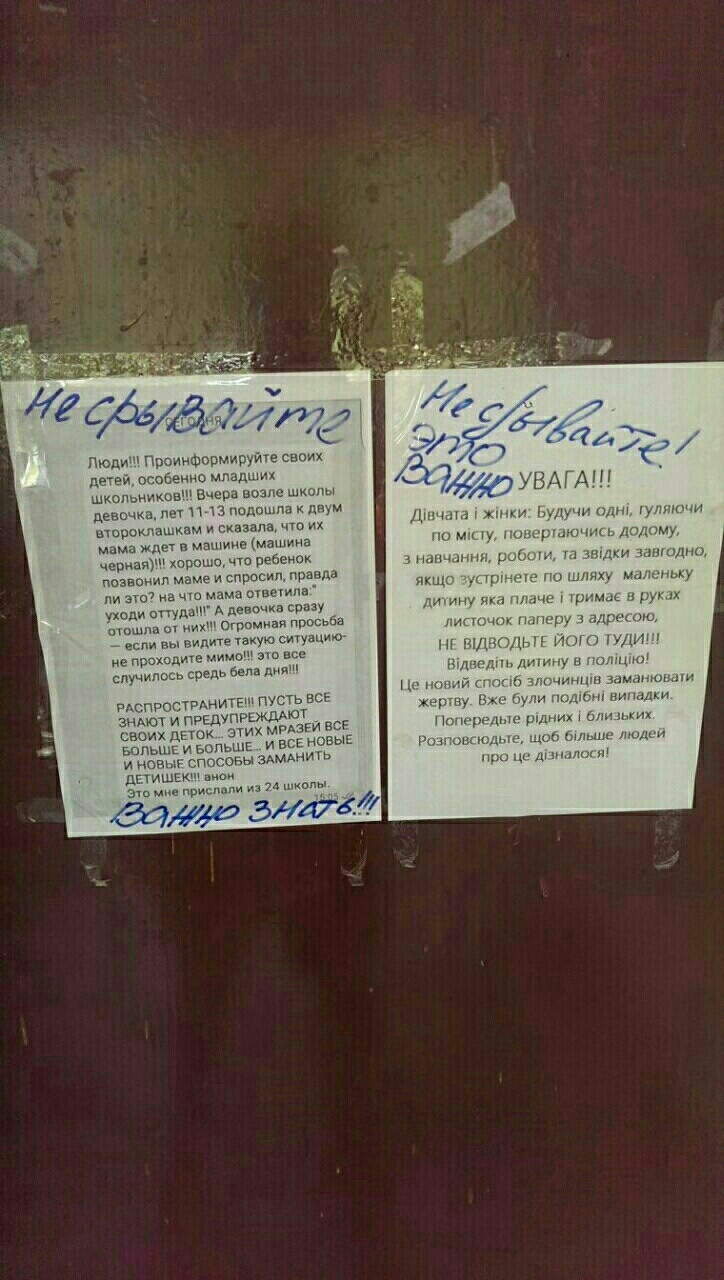 Не срывайте
СЕГОДНЯ
Люди!!! Проинформируйте своих
детей, особенно младших
школьников!!! Вчера возле школы
девочка, лет 11-13 подошла к двум
второклашкам и сказала, что их
мама ждет в машине (машина
черная)!!! хорошо, что ребенок
позвонил маме и спросил, правда
ли это? на что мама ответила:"
уходи оттуда!!!" А девочка сразу
отошла от них!!! Огромная просьба
— если вы видите такую ситуацию-
не проходите мимо!!! это все
случилось средь бела дня!!!
РАСПРОСТРАНИТЕ!!! ПУСТЬ ВСЕ
ЗНАЮТ И ПРЕДУПРЕЖДАЮТ
СВОИХ ДЕТОК... ЭТИХ МРАЗЕЙ ВСЕ
БОЛЬШЕ И БОЛЬШЕ... И ВСЕ НОВЫЕ
И НОВЫЕ СПОСОБЫ ЗАМАНИТЬ
ДЕТИШЕК!!! анон
Это мне прислали из 24 школы.
15:05
Важно знать!!!
Не срывайте!
это
Важно
УВАГА!!!
Дівчата і жінки: Будучи одні, гуляючи
по місту, повертаючись додому,
з навчання, роботи, та звідки завгодно,
якщо зустрінете по шляху маленьку
дитину яка плаче і тримає в руках
листочок паперу з адресою,
НЕ ВІДВОДЬТЕ ЙОГО ТУДИ!!!
Відведіть дитину в поліцію!
Це новий спосіб злочинців заманювати
жертву. Вже були подібні випадки.
Попередьте рідних і близьких.
Розповсюдьте, щоб більше людей
про це дізналося!